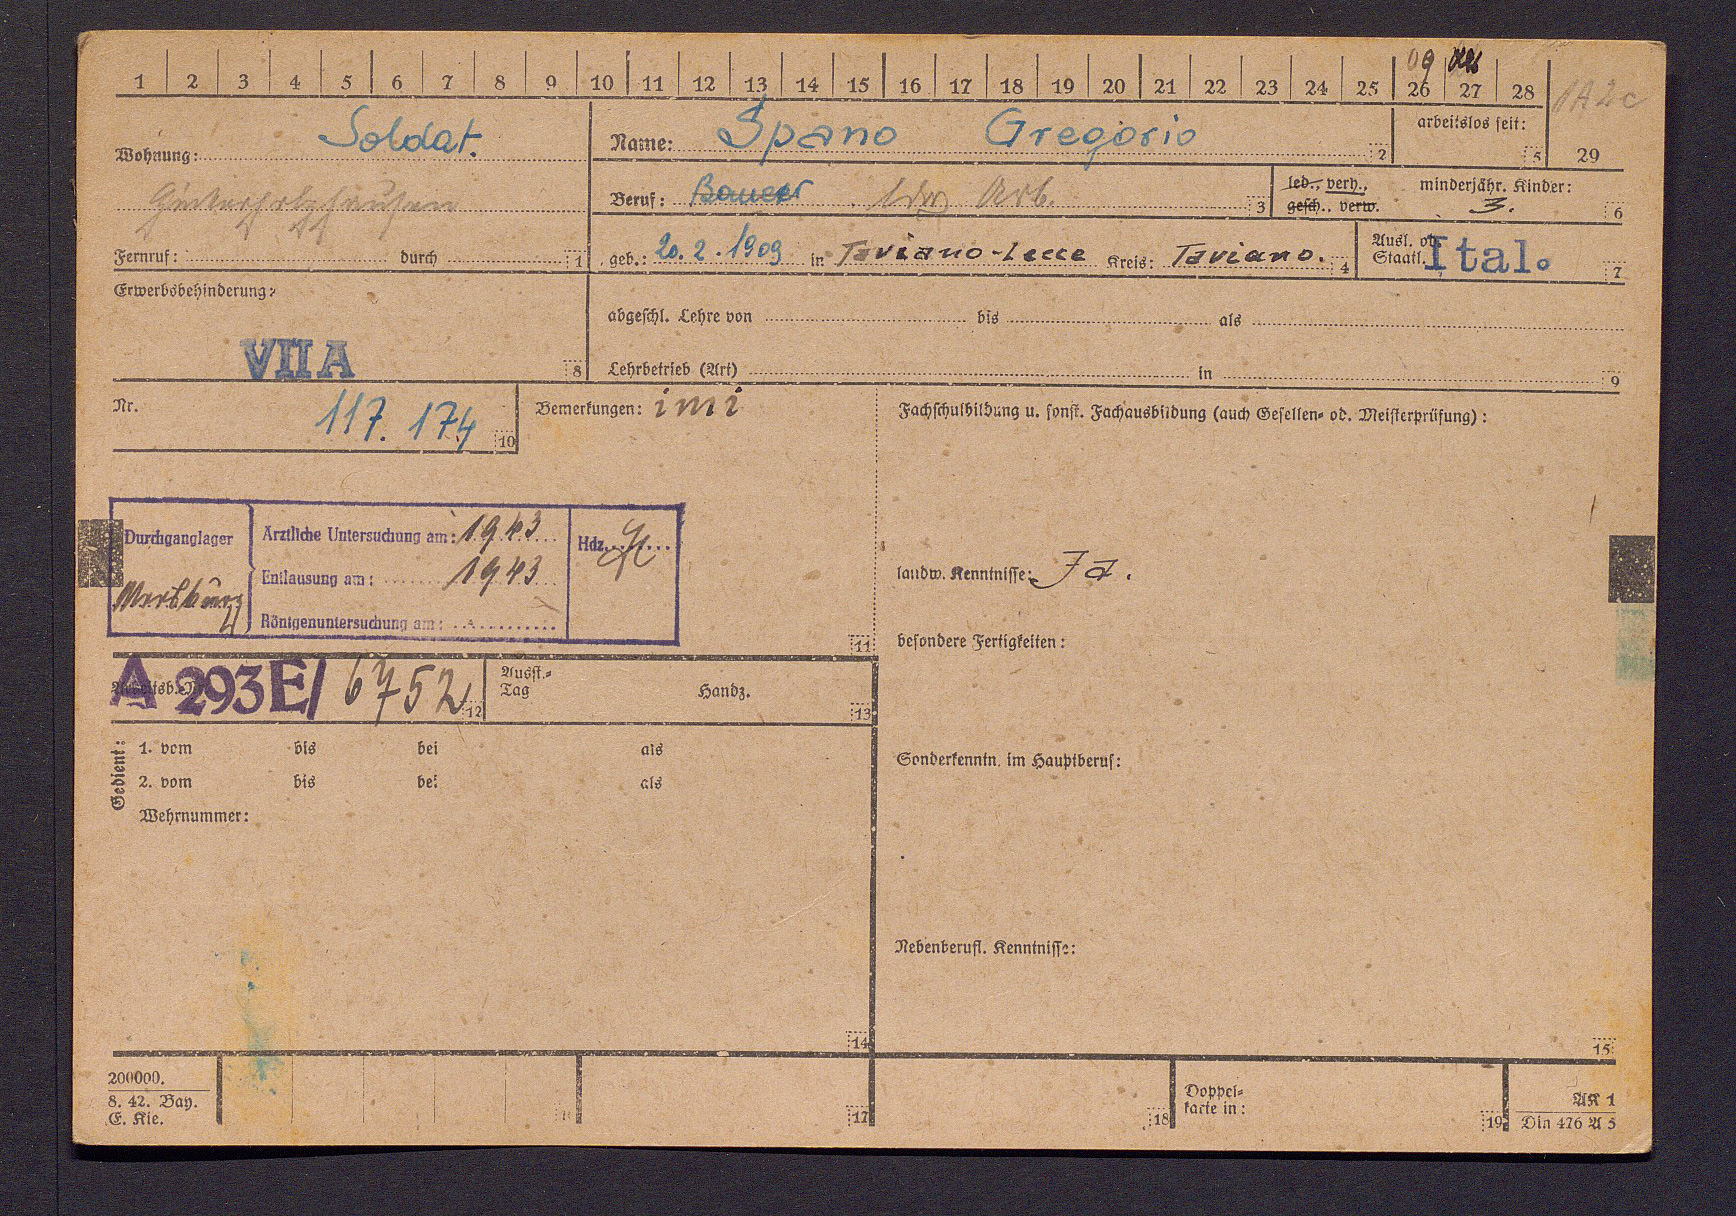 1 2 3 4 5 6 7 8 9 10 11 12 13 14 15 16 17 18 19 20 21 22 23 24 25 26 27 28
09
1A2c
Wohnung: Soldat.
Name: Spano Gregorio 2
arbeitslos seit: 5
29
Beruf: Bauer ldw Arb. 3
led., verh.,
gesch., verw.
minderjähr. Kinder:
3. 6
Fernruf: durch 1
geb.: 20.2.1909 in Taviano-Lecce Kreis: Taviano. 4
Ausl. od.
Staatl. Ital. 7
Erwerbsbehinderung:
VII A 8
abgeschl. Lehre von bis als
Lehrbetrieb (Art) in 9
Nr. 117.174 10
Bemerkungen: imi
Fachschulbildung u. sonst. Fachausbildung (auch Gesellen- od. Meisterprüfung):
Durchganglager
Ärztliche Untersuchung am: 1943
Hdz.
Entlausung am: 1943
Röntgenuntersuchung am:
11
landw. Kenntnisse: Ja.
besondere Fertigkeiten:
Arbeitsb.-Nr. A 293E/ 6752 12
Ausst.-
Tag
Handz. 13
Gedient:
1. vom bis bei als
2. vom bis bei als
Wehrnummer:
Sonderkenntn. im Hauptberuf:
Nebenberufl. Kenntnisse:
14
15
200000.
8. 42. Bay.
E. Kie.
17
18
Doppel-
karte in:
19
AK 1
Din 476 A 5